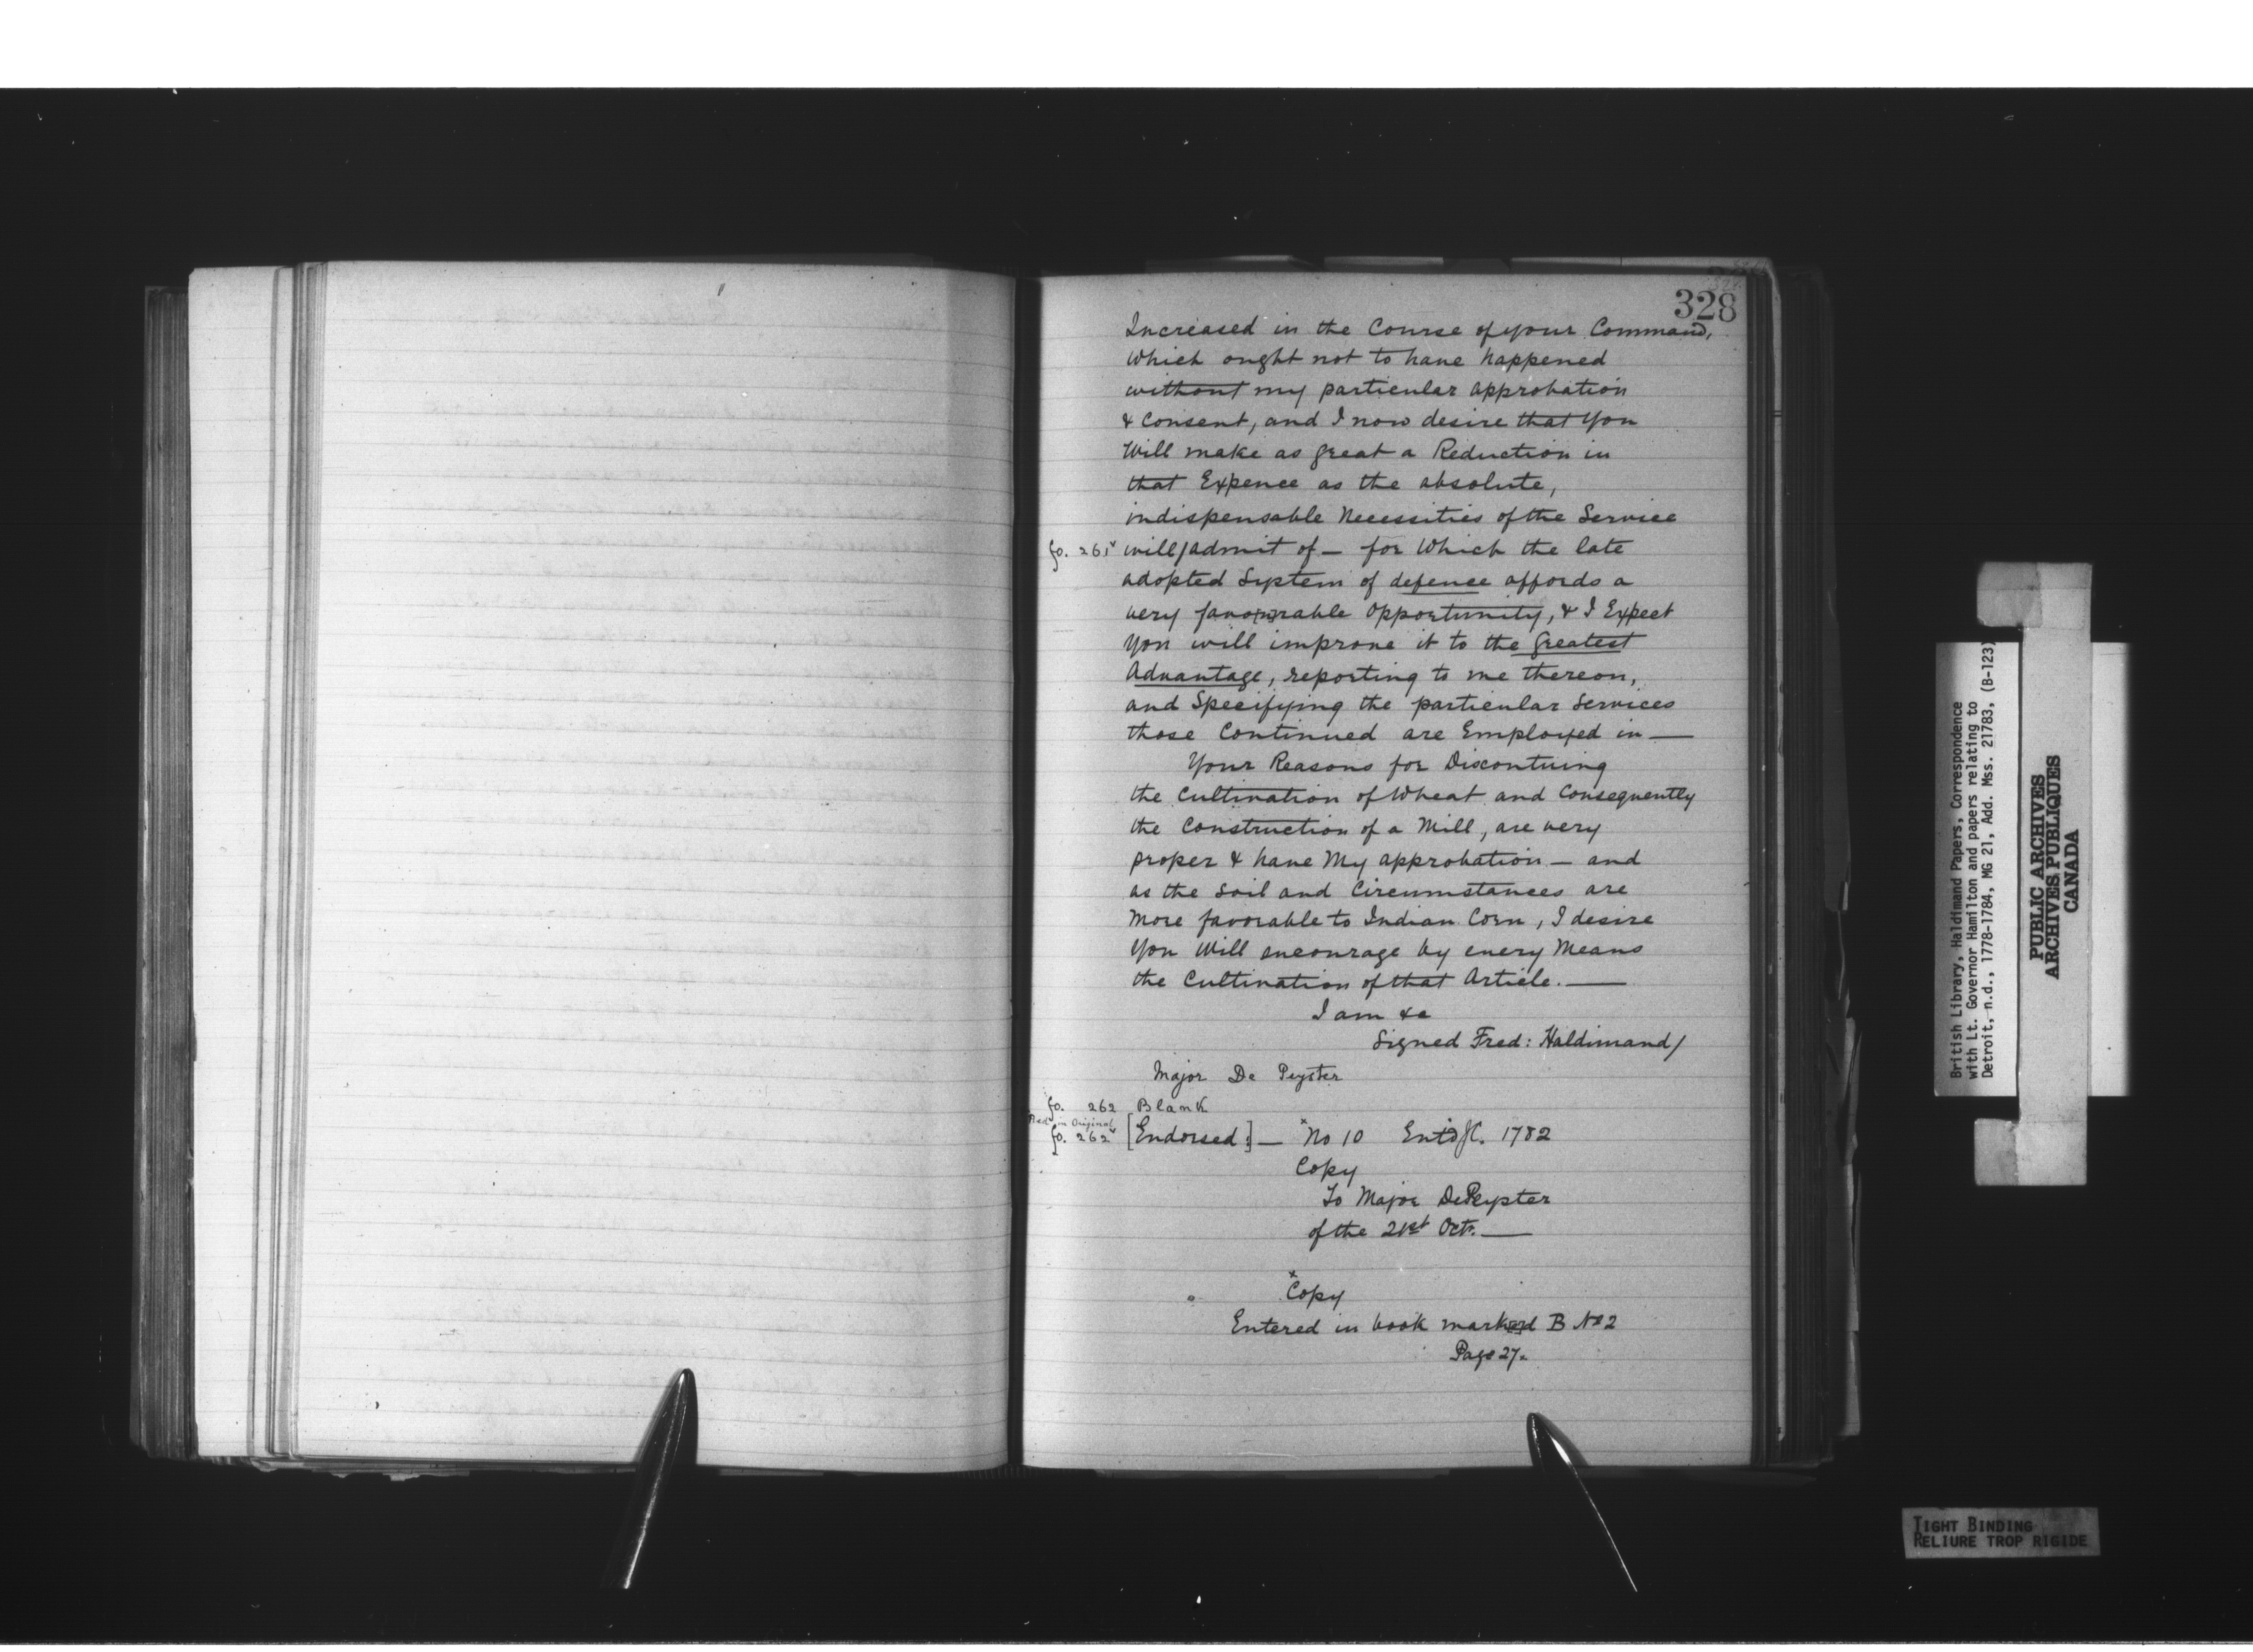 328
Increased in the Course of your Command,
Which ought not to have happened
without my particular approbation
& Consent, and I now desire that You
Will make as great a Reduction in
that Expence as the absolute,
indispensable Necessities of the Service
fo. 261v will/admit of — for Which the late
adopted System of defence affords a
very favourable Opportunity, & I Expect
You will improve it to the Greatest
Advantage, reporting to me thereon,
and Specifying the particular Services
those Continued are Employed in —
Your Reasons for Discontuing
the Cultivation of Wheat and Consequently
the Construction of a Mill, are very
proper & have My approbation — and
as the Soil and Circumstances are
More favorable to Indian Corn, I desire
You Will encourage by every Means
the Cultivation of that Article. —
I am &c
Signed Fred: Haldimand/
Major De Peyster
fo. 262 Blank
Red in Original
fo. 262v [Endorsed:] — x No 10 Entd 1782
Copy
To Major DePeyster
of the 21st Octr. —
x Copy
Entered in book marked B No 2
Page 27.
British Library, Haldimand Papers, Correspondence
with Lt. Governor Hamilton and papers relating to
Detroit, n.d., 1778-1784, MG 21, Add. Mss. 21783, (B-123)
PUBLIC ARCHIVES
ARCHIVES PUBLIQUES
CANADA
TIGHT BINDING
RELIURE TROP RIGIDE